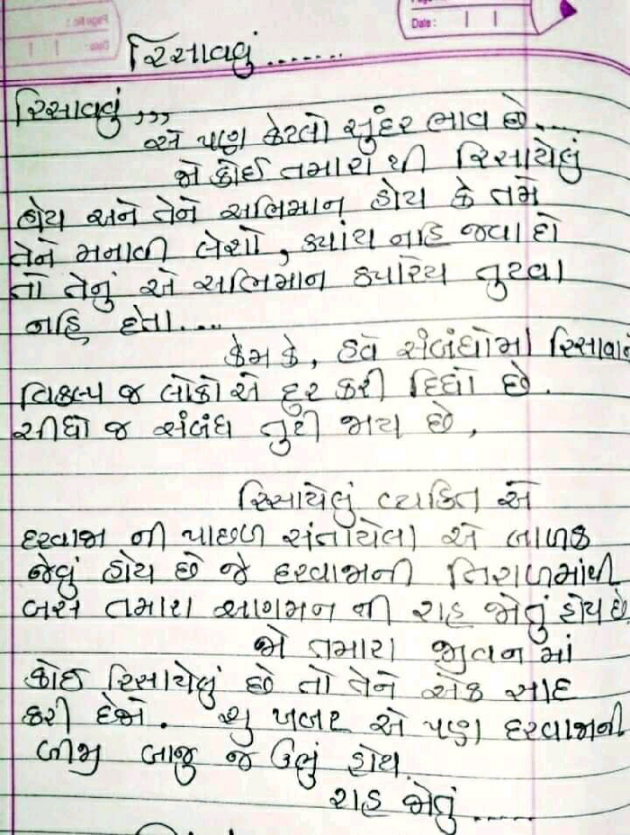 Date:
રિસાવવું.......
રિસાવવું,,,
એ પણ કેટલો સુંદર ભાવ છે....
જો કોઈ તમારા થી રિસાયેલું
હોય અને તેને અભિમાન હોય કે તમે
તેને મનાવી લેશો, ક્યાંય નહિ જવા દો
તો તેનું એ અભિમાન ક્યારેય તુટવા
નહિ દેતા....
કેમ કે, હવે સંબંધોમાં રિસાવાનો
વિકલ્પ જ લોકો એ દુર કરી દિધો છે.
સીધો જ સંબંધ તુટી જાય છે,
રિસાયેલું વ્યકિત એ
દરવાજા ની પાછળ સંતાયેલા એ બાળક
જેવું હોય છે જે દરવાજાની તિરાળમાંથી
બસ તમારા આગમન ની રાહ જોતું હોય છે
જો તમારા જીવન માં
કોઈ રિસાયેલું છે તો તેને એક સાદ
કરી દેજો. શુ ખબર એ પણ દરવાજાની
બીજી બાજુ જ ઉભું હોય.
રાહ જોતું.....